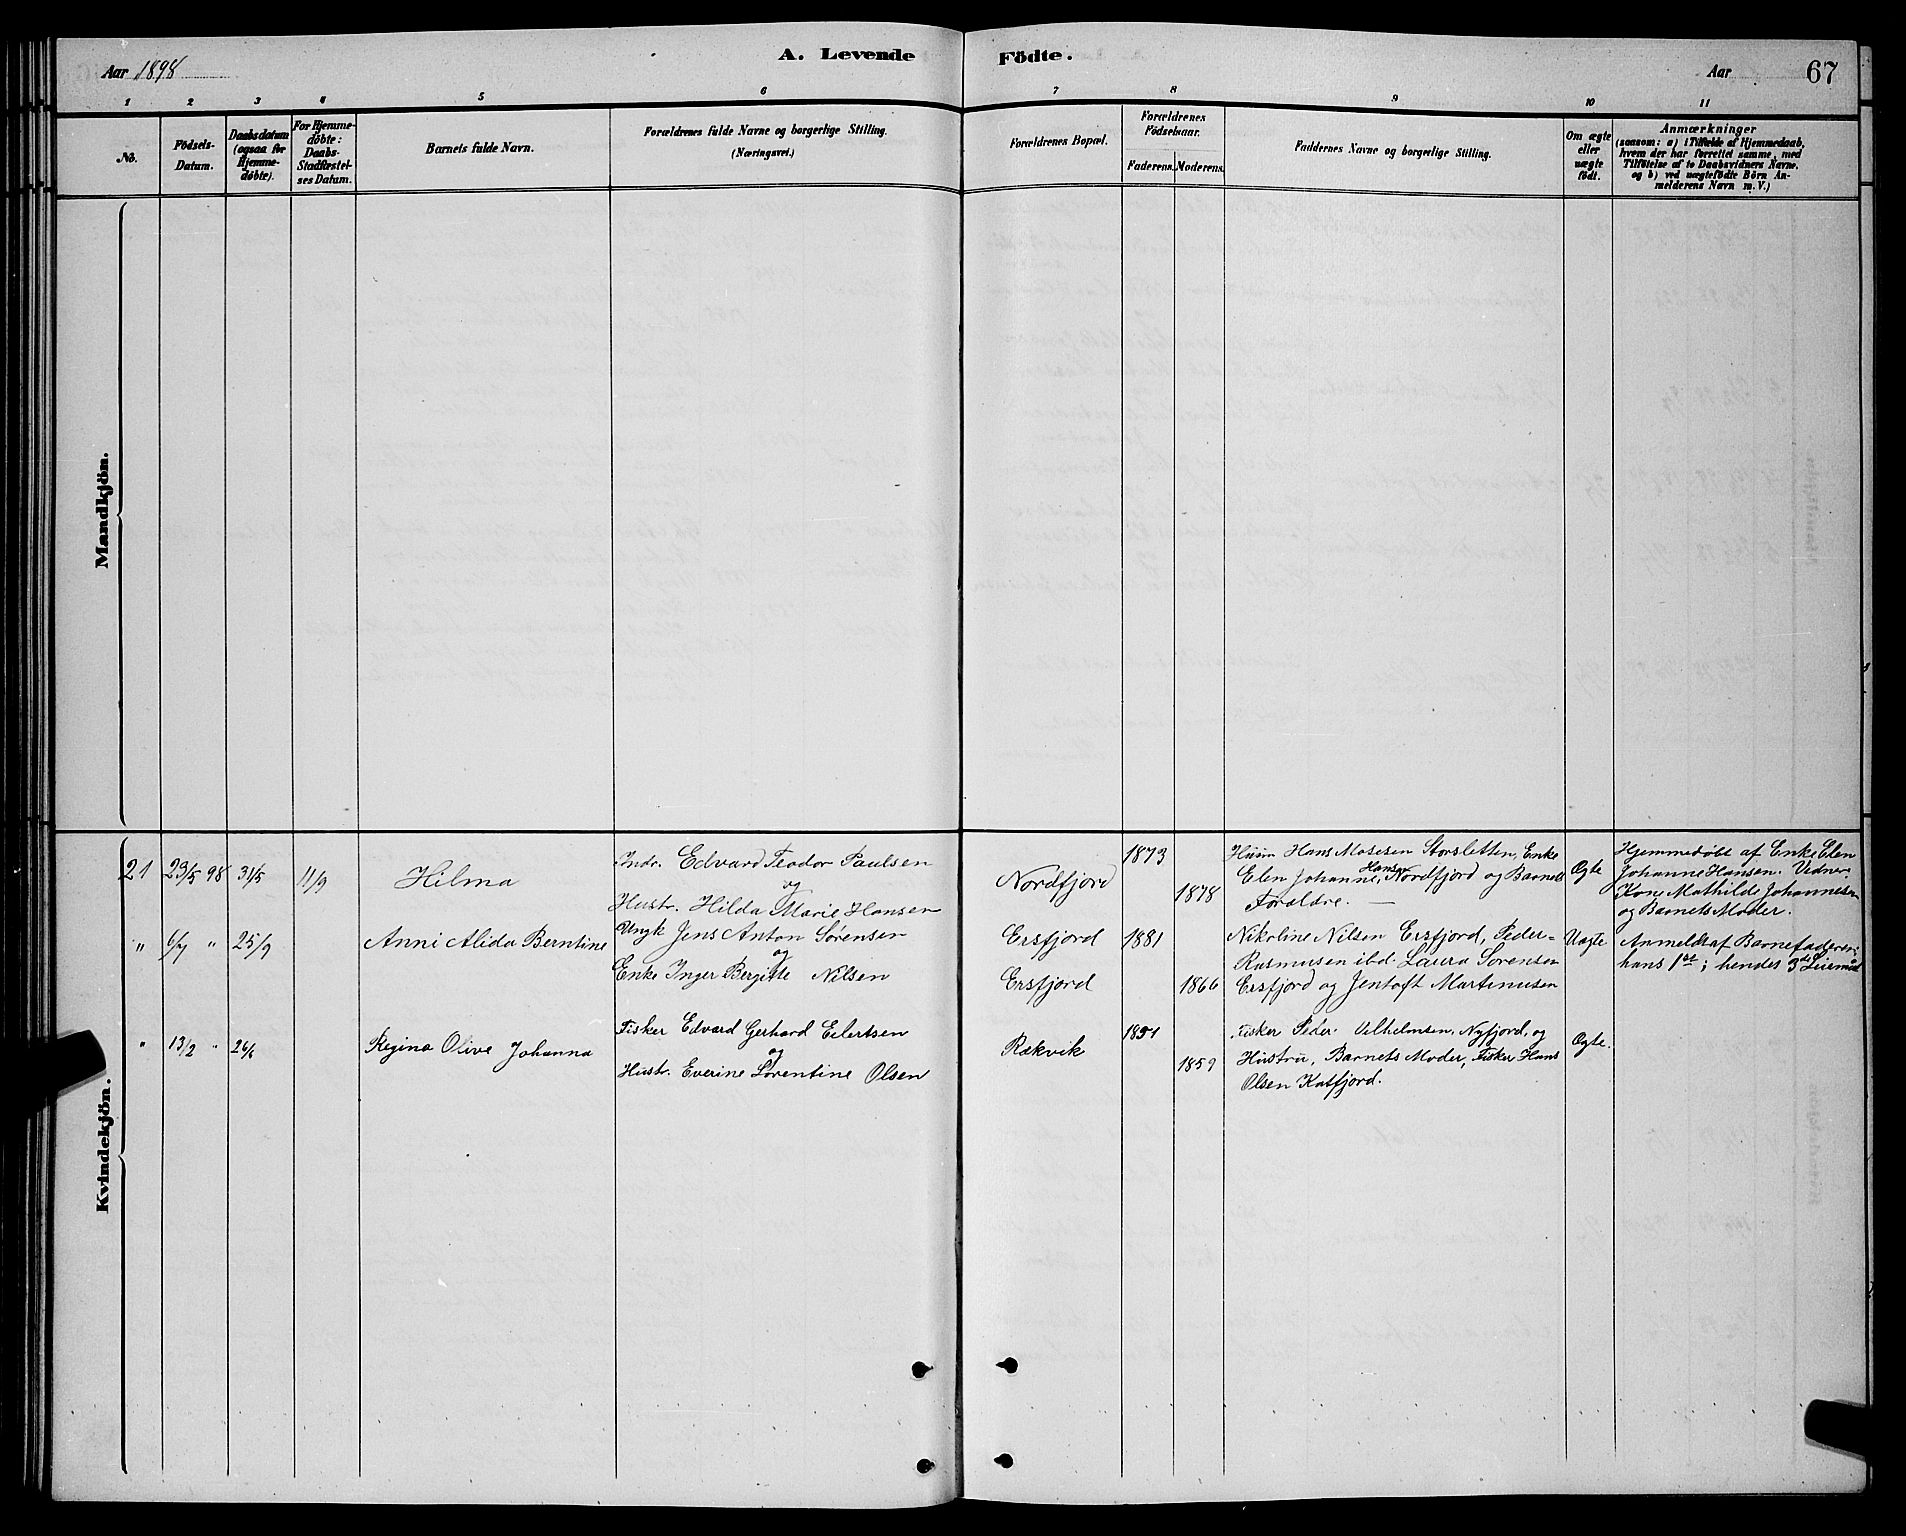 Aar 1898
A. Levende Födte.
Aar 67
1 2 3 4 5 6 7 8 9 10 11
No.
Födsels-Datum.
Daabsdatum (ogsaa for Hjemme-döbte).
For Hjemme-döbte: Daabs-Stadfæstel-ses Datum.
Barnets fulde Navn.
Forældrenes fulde Navne og borgerlige Stilling. (Næringsvei.)
Forældrenes Bopæl.
Forældrenes Födselsaar.
Faderens. Moderens.
Faddernes Navne og borgerlige Stilling.
Om ægte eller uægte födt.
Anmærkninger (saasom: a) i Tilfælde af Hjemmedaab, hvem der har forrettet samme, med Tilföielse af to Daabsvidners Navne, og b) ved uægtefödte Börn An-melderens Navn m. V.)
Mandkjön.
Kvindekjön.
21 23/5 98 31/5 11/9 Hilma
Indr. Edvard Teodor Paulsen
og
Hustr. Hilda Marie Hansen
Nordfjord
1873
1878
Husm Hans Mosesen Storsletten, Enke
Elen Johanne Hansen, Nordfjord og Barnets
Forældre. —
Ægte
Hjemmedøbt af Enke Elen
Johanne Hansen. Vidner:
Kone Mathilde Johannesen
og Barnets Moder.
" 6/7 " 25/9 Anni Alida Berntine
Ungk Jens Anton Sørensen
og
Enke Inger Bergitte Nilsen
Ersfjord
Ersfjord
1881
1866
Nikoline Nilsen Ersfjord, Peder
Rasmusen ibd. Laura Sørensen
Ersfjord og Jentoft Martinusen
Uægte
Anmeldt af Barnefaderen:
hans 1ste; hendes 3die Leiermaal
" 13/2 " 26/6 Regina Olive Johanna
Fisker Edvard Gerhard Eilertsen
og
Hustr. Everine Sørentine Olsen
Rækvik
1851
1859
Fisker Peder Vilhelmsen, Nyfjord, og
Hustru, Barnets Moder, Fisker Hans
Olsen Katfjord.
Ægte.